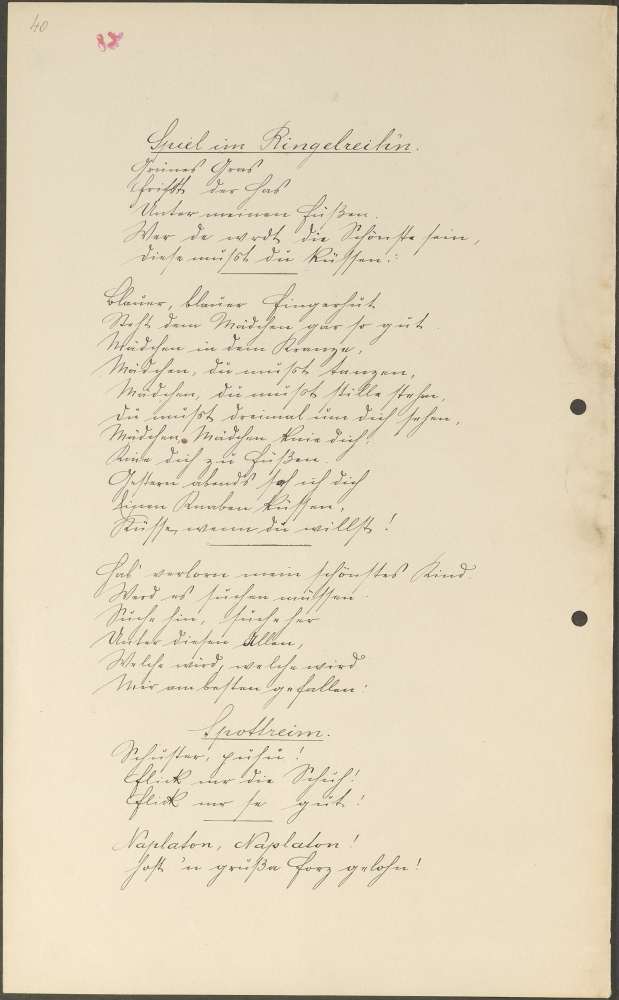 40
87
Spiel im Ringelreih'n.
Grünes Gras
frißt der Has
Unter meinen Füßen.
Wer de wrdt die Schönste sein,
Diese mußt du küssen:
Blauer, blauer Fingerhut
Steht dem Mädchen gar so gut.
Mädchen in dem Kranze,
Mädchen, du mußt tanzen,
Mädchen, du mußt stille stehn,
Du mußt dreimal um dich sehen,
Mädchen, Mädchen knie dich!
Knie dich zu Füßen.
Gestern abends sah ich dich
Einen Knaben küssen,
Küsse, wenn du willst!
Hab' verlorn mein schönstes Kind.
Werd es suchen müssen.
Suche hin, suche her
Unter diesen Allen,
Welche wird, welche wird
Mir am besten gefallen:
Spottreim.
Schuster, puhu!
Flick mr die Schuh!
Flick mr se gut!
Naplaton, Naplaton!
host 'n grußa Forz gelohn!